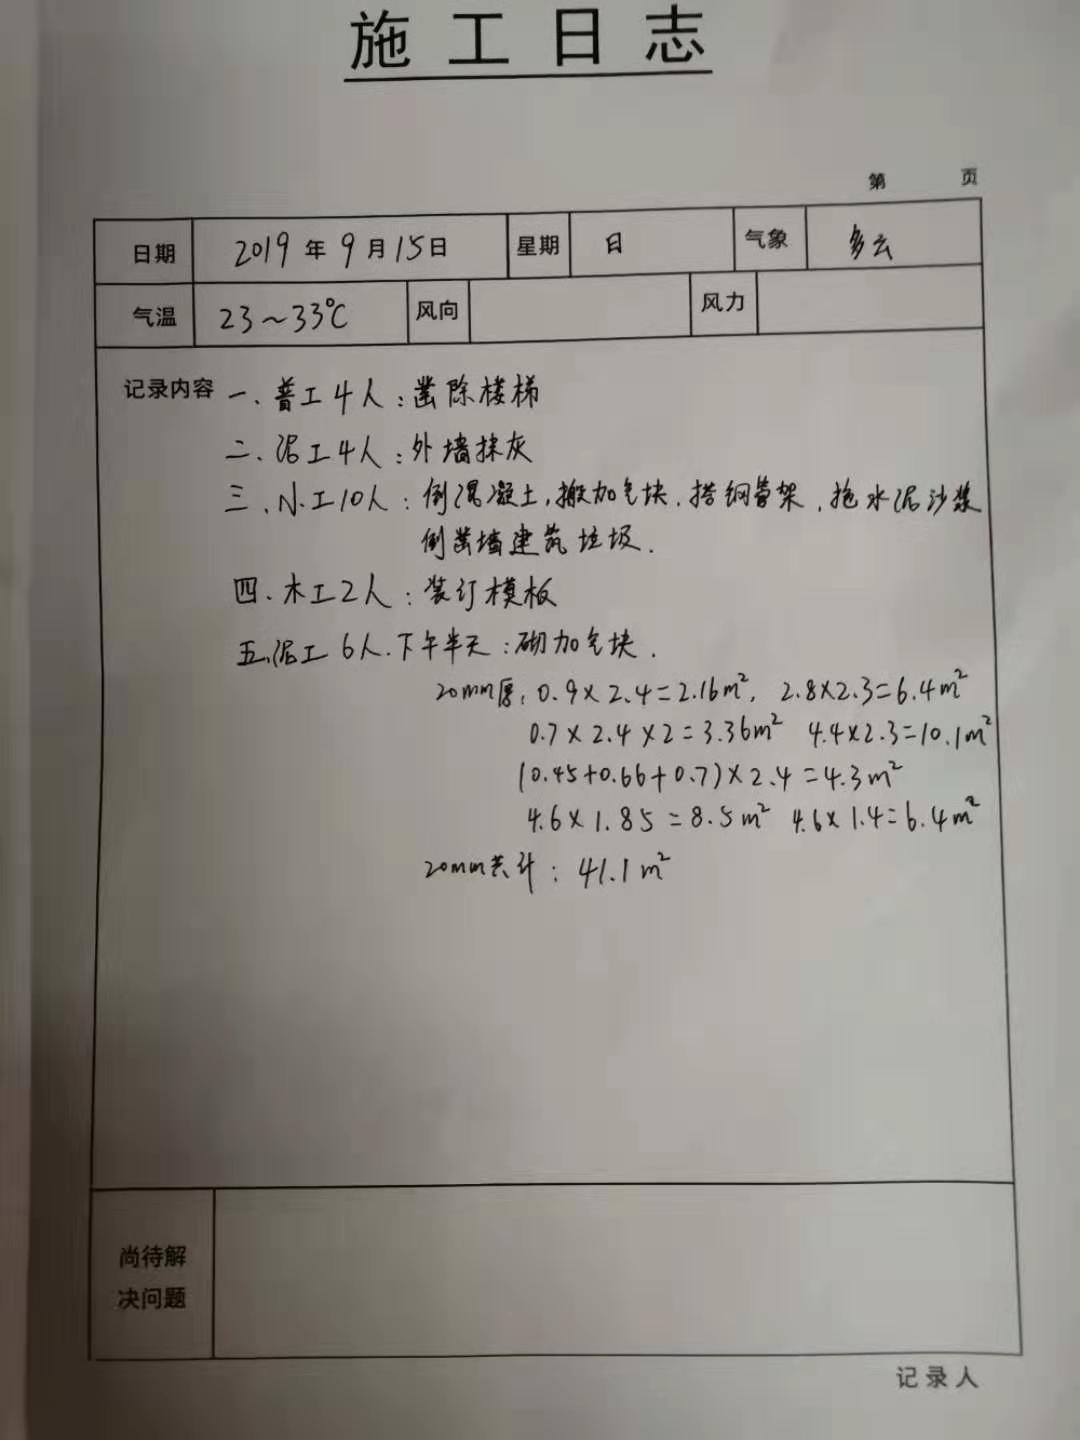 施工日志
第 页
日期 2019年9月15日 星期 日 气象 多云
气温 23~33℃ 风向 风力
记录内容 一、普工4人:凿除楼梯
二、泥工4人:外墙抹灰
三、小工10人:倒混凝土,搬加气块,搭钢管架,拖水泥沙浆
倒凿墙建筑垃圾.
四、木工2人:装订模板
五、泥工6人.下午半天:砌加气块.
20mm厚:0.9×2.4=2.16m², 2.8×2.3=6.4m²
0.7×2.4×2=3.36m² 4.4×2.3=10.1m²
(0.45+0.66+0.7)×2.4=4.3m²
4.6×1.85=8.5m² 4.6×1.4=6.4m²
20mm共计:41.1m²
尚待解
决问题
记录人